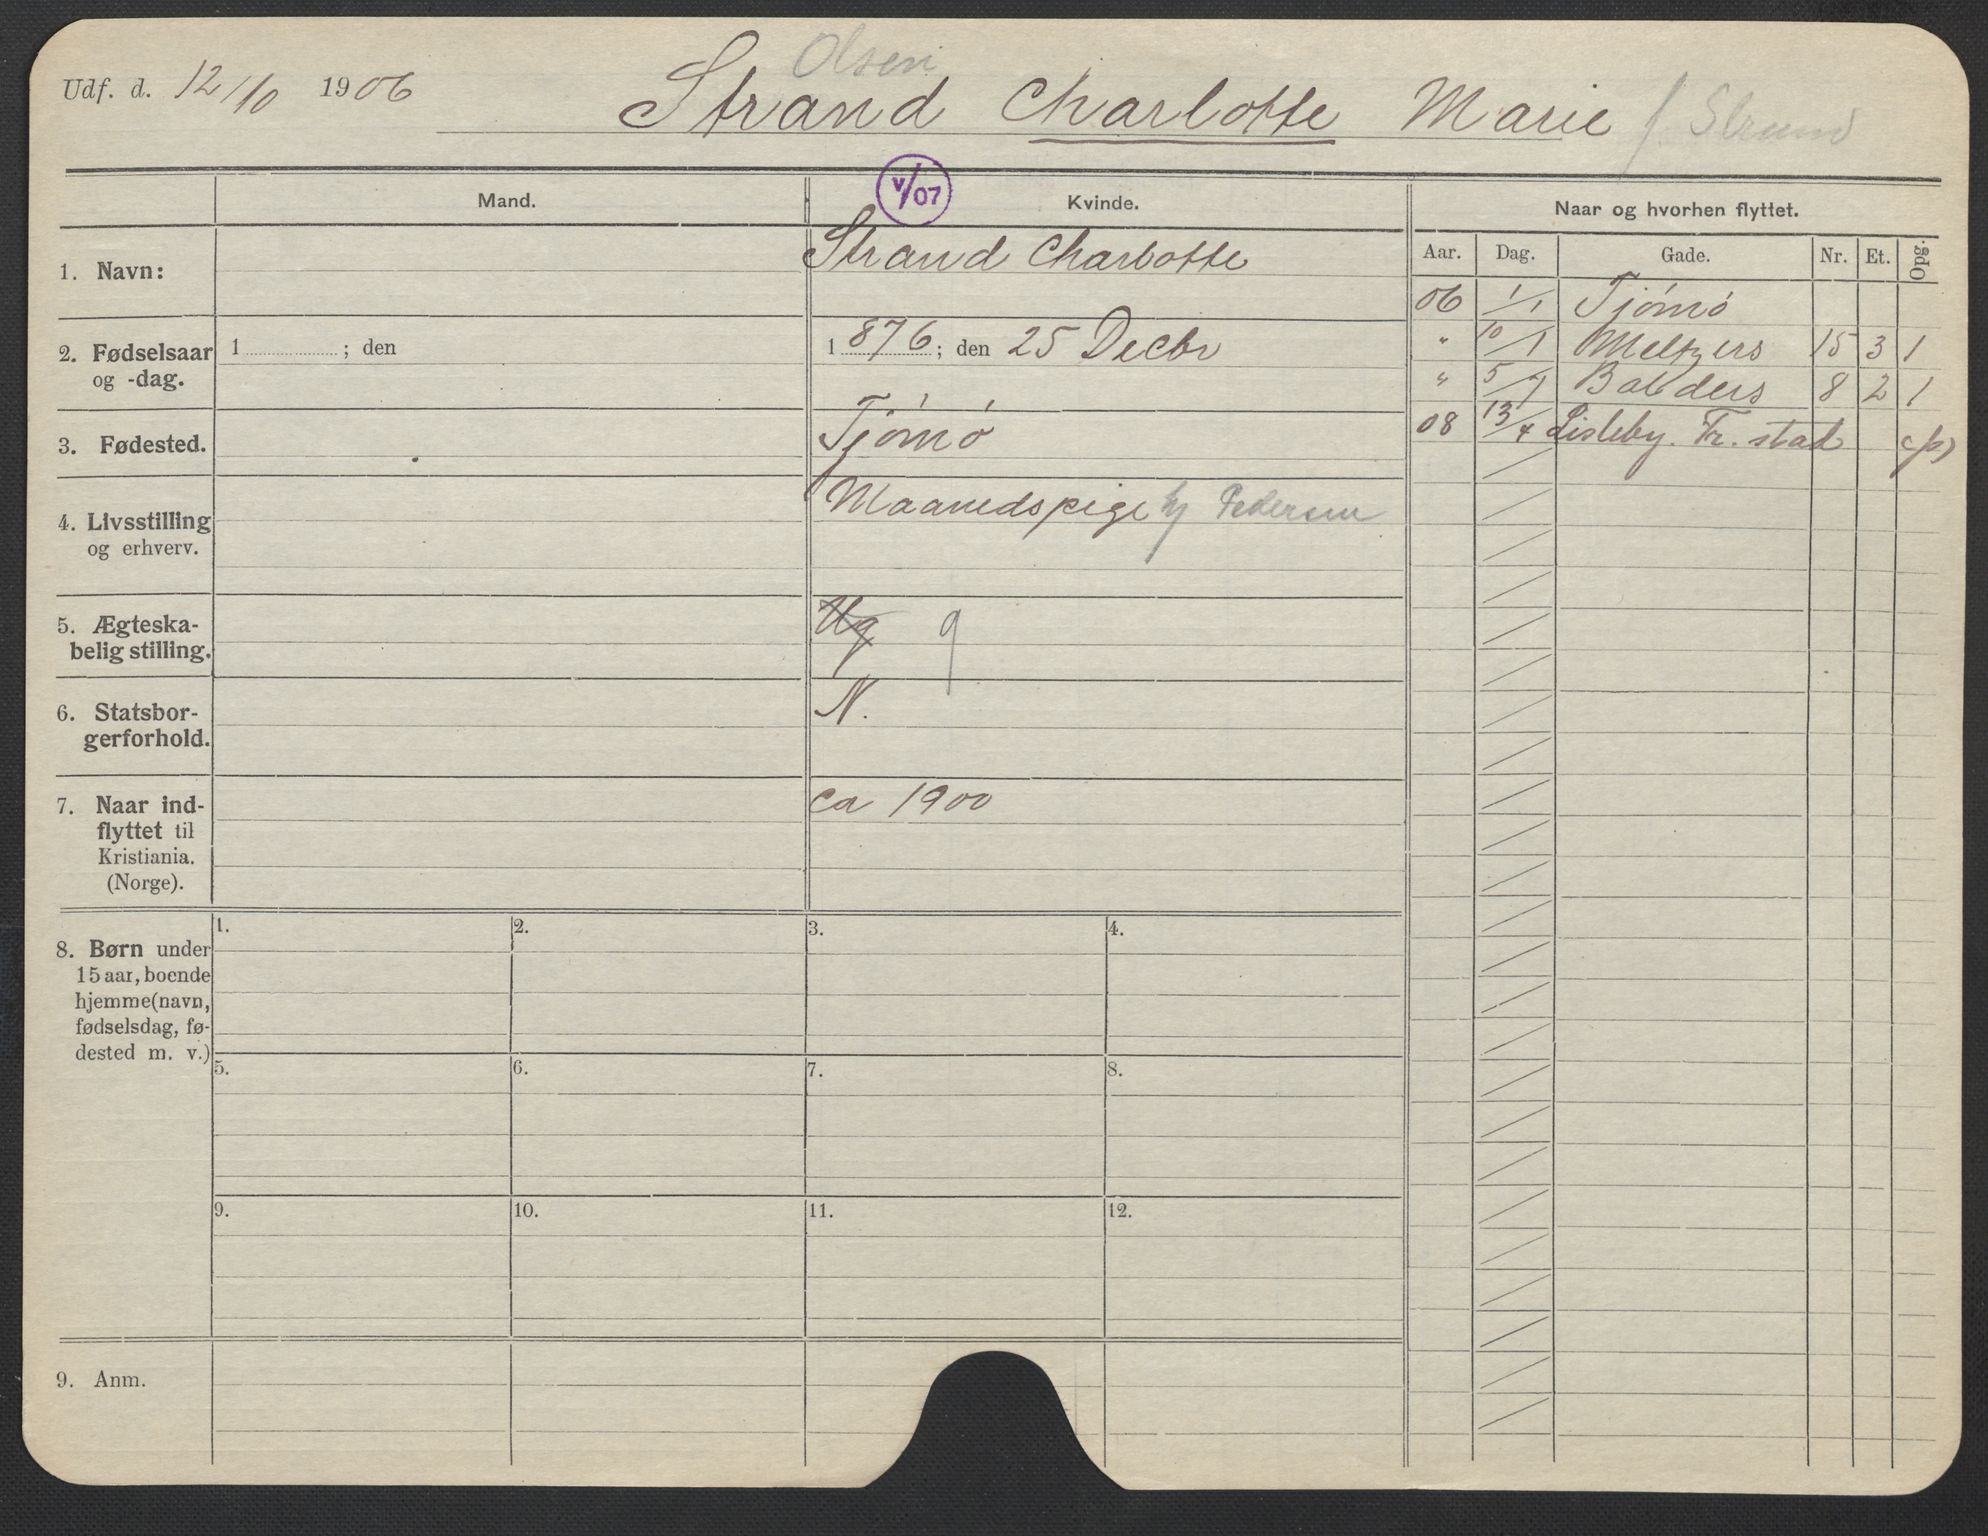 Olsen
Udf. d. 12/10 1906 Strand Charlotte Marie f. Strand
Mand. V/07 Kvinde. Naar og hvorhen flyttet.
Aar. Dag. Gade. Nr. Et. Opg.
1. Navn: Strand Charlotte
06 1/1 Tjömö
2. Fødselsaar og -dag. 1 ; den 1876; den 25 Decbr
" 10/1 Meltzers 15 3 1
" 5/7 Balders 8 2 1
3. Fødested. Tjömö
08 13/4 Lisleby. Fr. stad
4. Livsstilling Maanedspige hj Pedersen
og erhverv.
5. Ægteska- Ug g
belig stilling.
6. Statsbor- N.
gerforhold.
7. Naar ind- ca 1900
flyttet til
Kristiania.
(Norge).
8. Børn under
15 aar, boende
hjemme (navn,
fødselsdag, fø-
dested m. v.)
1. 2. 3. 4.
5. 6. 7. 8.
9. 10. 11. 12.
9. Anm.